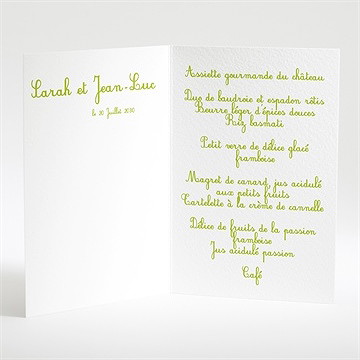 Sarah et Jean-Luc
le 20 Juillet 2030
Assiette gourmande du château
Duo de baudroie et espadon rôtis
Beurre léger d'épices douces
Riz basmati
Petit verre de délice glacé
framboise
Magret de canard, jus acidulé
aux petits fruits
Cartelette à la crème de cannelle
Délice de fruits de la passion
framboise
Jus acidulé passion
Café